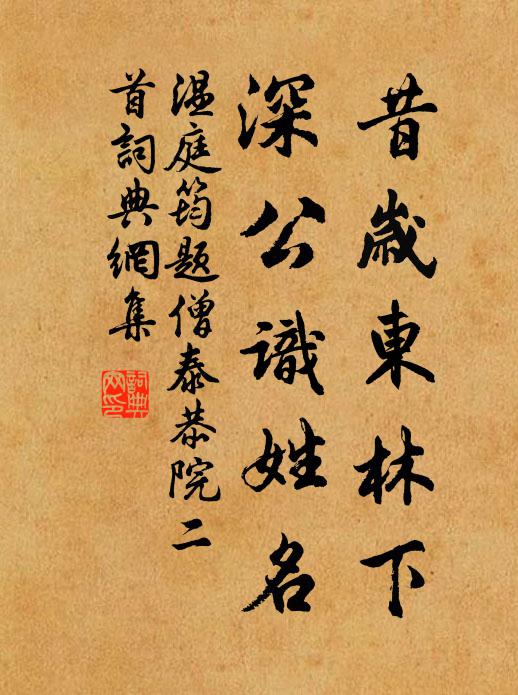 昔歲東林下
深公識姓名
溫庭筠題僧泰恭院二
首詞典網集
詞典
網印